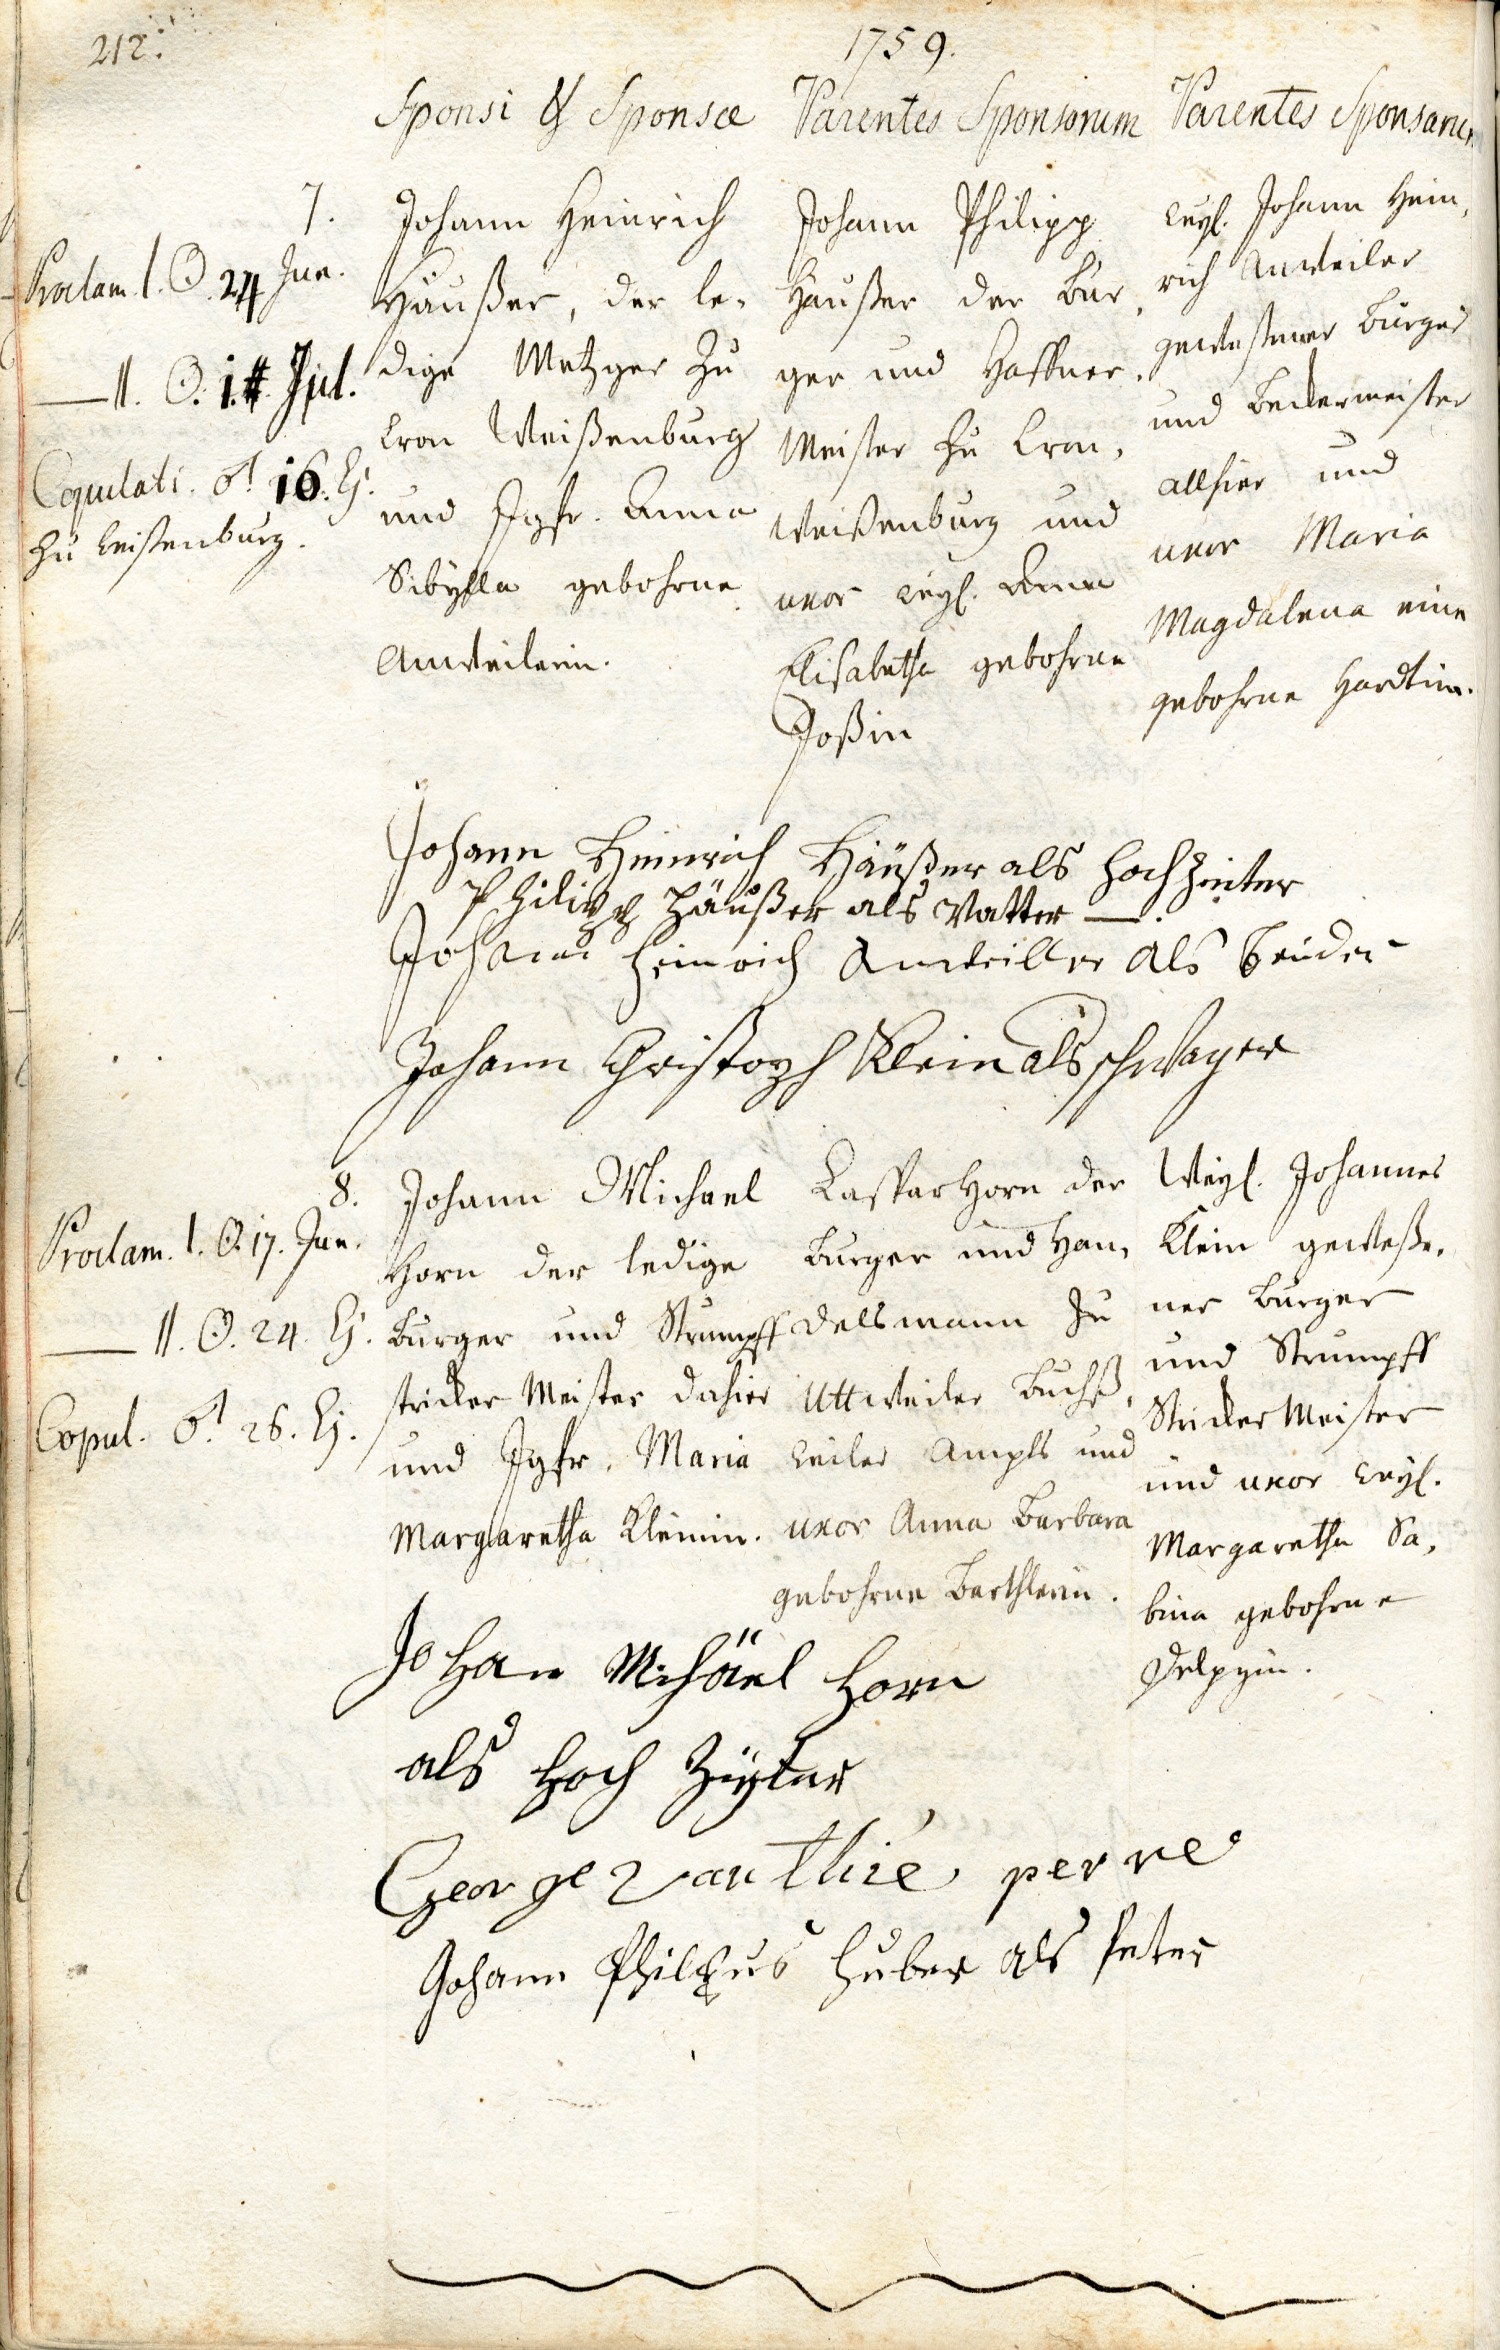 212.
1759.
Sponsi & Sponsae
Parentes Sponsorum
Parentes Sponsarum
7.
Proclam. I. ☉. 24 Jun.
II. ☉. 1. Jul.
Copulati. ♂. 16. Ej.
zu Weißenburg.
Johann Heinrich
Häußer, der le-
dige Metzger zu
Cron Weißenburg
und Jgfr. Anna
Sibylla gebohrne
Anweilerin.
Johann Philipp
Häußer der Bur,
ger und Haffner
Meister zu Cron,
weißenburg und
uxor weyl. Anna
Elisabetha gebohrne
Joßin
weyl. Johann Hein,
rich Anweiler
geweßener Burger
und Beckermeister
allhier und
uxor Maria
Magdalena eine
gebohrne Hardtin.
Johann Heinrich Häußer als Hochzeiter
Philipp Häußer als Vatter
Johann Heinrich Anweiller als bruder
Johann Christoph Klein als schwager
8.
Proclam. I. ☉. 17. Jun.
II. ☉. 24. Ej.
Copul. ♂. 26. Ej.
Johann Michael
Horn der ledige
Burger und Strumpff
stricker Meister dahier
und Jgfr. Maria
Margaretha Kleinin.
Casspar Horn der
Burger und Han,
delsmann zu
Uttweiler Buchß,
weiler Ampts und
uxor Anna Barbara
gebohrne Barthlerin.
Weyl. Johannes
Klein geweße,
ner Burger
und Strumpff
Stricker Meister
und uxor weyl.
Margaretha Sa,
bina gebohrne
Johan Michäel Horn
als Hoch Zeyter
George vauthié perre
Johann Philippus Huber als Peter